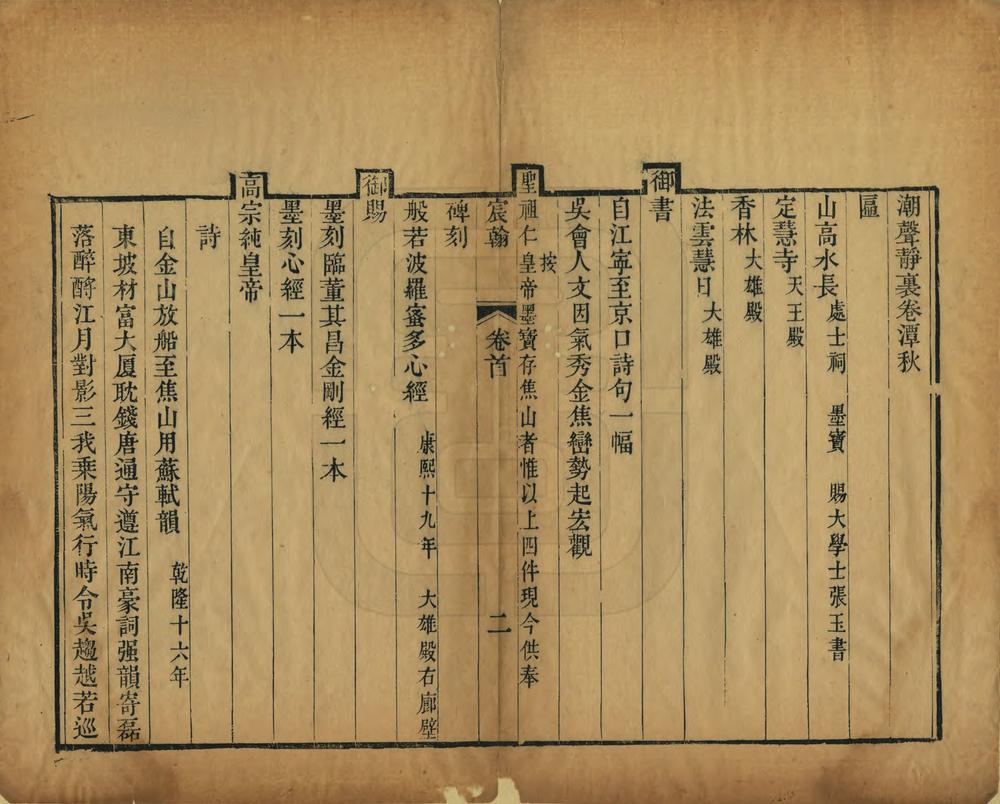 潮聲靜裏卷潭秋
匾
山高水長 處士祠　墨寶　賜大學士張玉書
定慧寺 天王殿
香林 大雄殿
法雲慧日 大雄殿
御書
自江寧至京口詩句一幅
吳會人文因氣秀金焦巒勢起宏觀
按
聖祖仁皇帝墨寶存焦山者惟以上四件現今供奉
宸翰 卷首 二
碑刻
般若波羅蜜多心經 康熙十九年　大雄殿右廊壁
御賜
墨刻臨董其昌金剛經一本
墨刻心經一本
高宗純皇帝
詩
自金山放船至焦山用蘇軾韻 乾隆十六年
東坡材富大厦耽錢唐通守遵江南豪詞强韻寄磊
落醉酹江月對影三我乘陽氣行時令吳趨越若巡